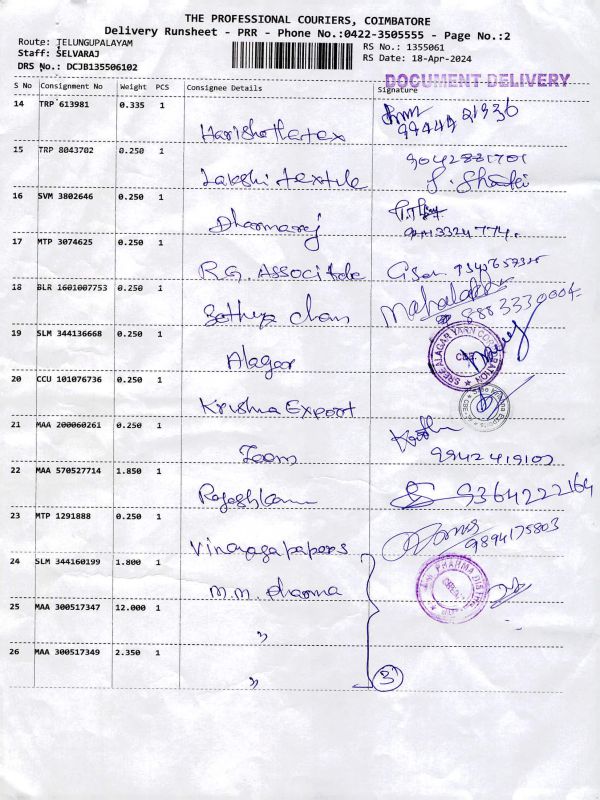 THE PROFESSIONAL COURIERS, COIMBATORE
Delivery Runsheet - PRR - Phone No.:0422-3505555 - Page No.:2
Route: TELUNGUPALAYAM
Staff: SELVARAJ
DRS No.: DCJB135506102
RS No.: 1355061
RS Date: 18-Apr-2024
DOCUMENT DELIVERY
S No Consignment No Weight PCS Consignee Details Signature
14 TRP 613981 0.335 1
15 TRP 8043702 0.250 1
Lakshi textile
16 SVM 3802646 0.250 1
Dharmaraj
17 MTP 3074625 0.250 1
R.G. Associate
18 BLR 1601007753 0.250 1
Mahalakshmi 8883330004
19 SLM 344136668 0.250 1
Alagar
SREE ALAGAR YARN CORPORATION
20 CCU 101076736 0.250 1
Krishna Export
21 MAA 200060261 0.250 1
Zoom
9942419103
22 MAA 570527714 1.850 1
9364222164
23 MTP 1291888 0.250 1
Vinayaga papers
9894175803
24 SLM 344160199 1.800 1
M.M. Pharma
25 MAA 300517347 12.000 1
"
26 MAA 300517349 2.350 1
"
3